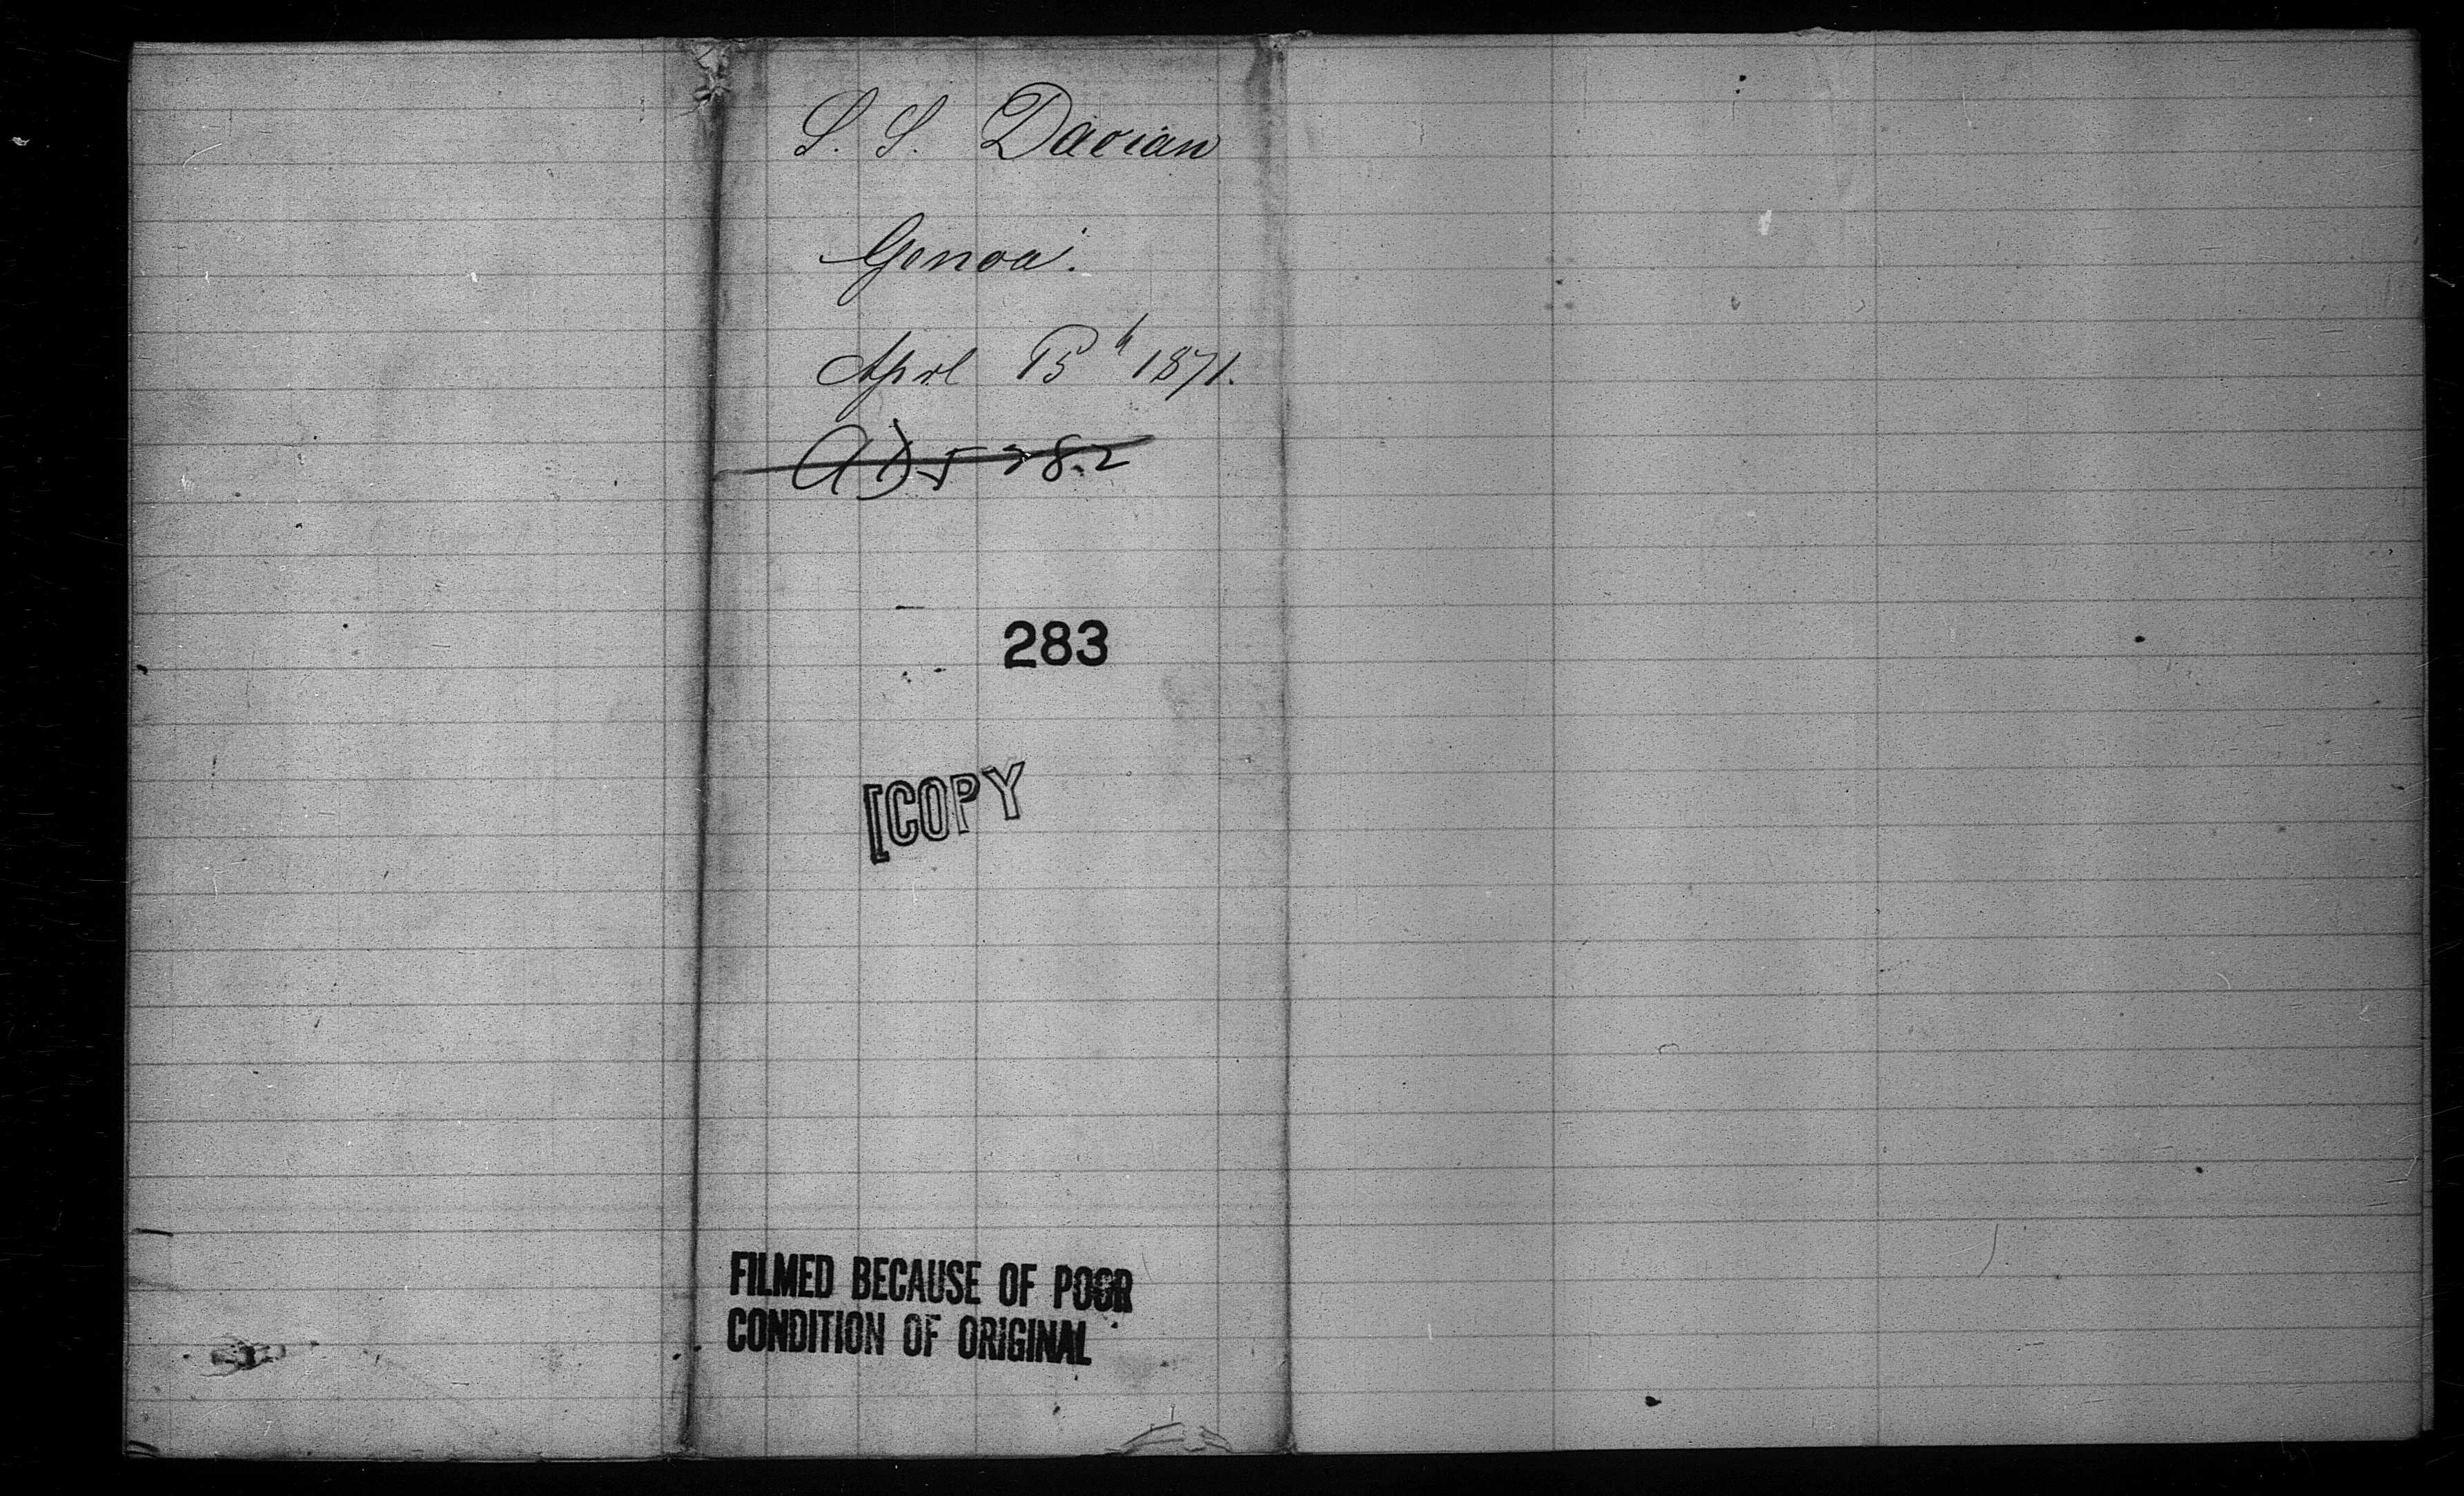 S. S. Dacian
Genoa.
Aprl 15th 1871.
283
[COPY
FILMED BECAUSE OF POOR
CONDITION OF ORIGINAL